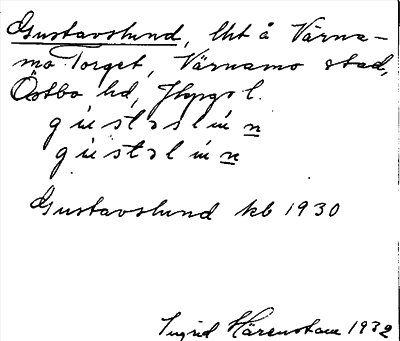 Gustavslund, lht å Värna-
mo Torget, Värnamo stad,
Östbo hd, Jkpgs l.
gústaslún
gústəlún
Gustavslund kb 1930
Ingrid Härenstam 1932